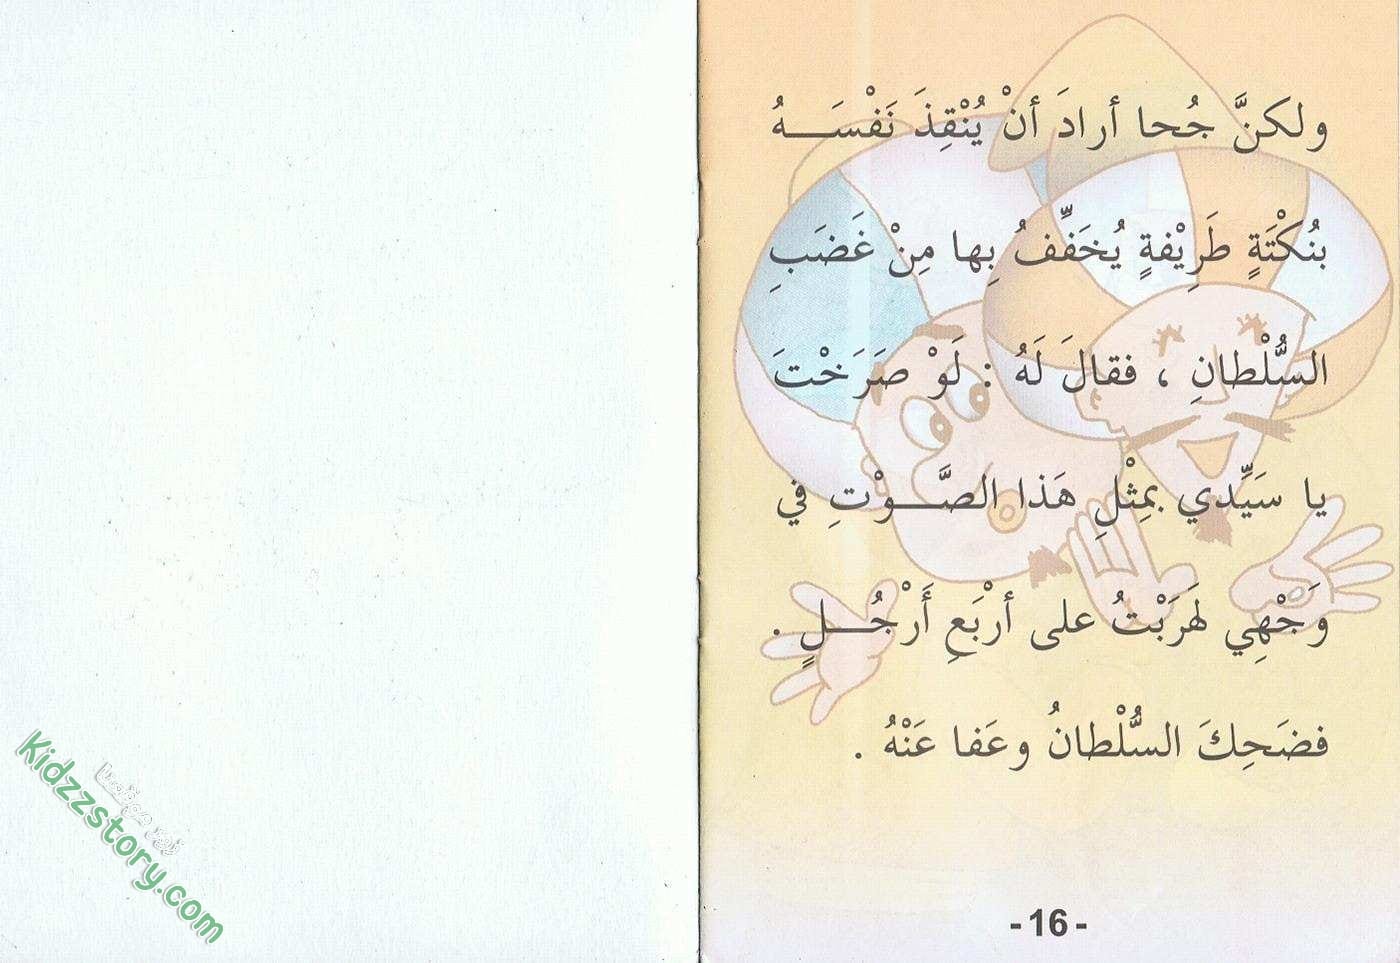 ولكنَّ جُحا أرادَ أنْ يُنْقِذَ نَفْسَـــهُ
بنُكْتَةٍ طَرِيْفةٍ يُخَفِّفُ بِها مِنْ غَضَبِ
السُّلْطانِ ، فقالَ لَهُ : لَوْ صَرَخْتَ
يا سَيِّدي بمِثْلِ هَذا الصَّـــوْتِ في
وَجْهِي لهَرَبْتُ على أرْبَعِ أَرْجُـــلٍ .
فضَحِكَ السُّلْطانُ وعَفا عَنْهُ .
-16-
Kidzzstory.com